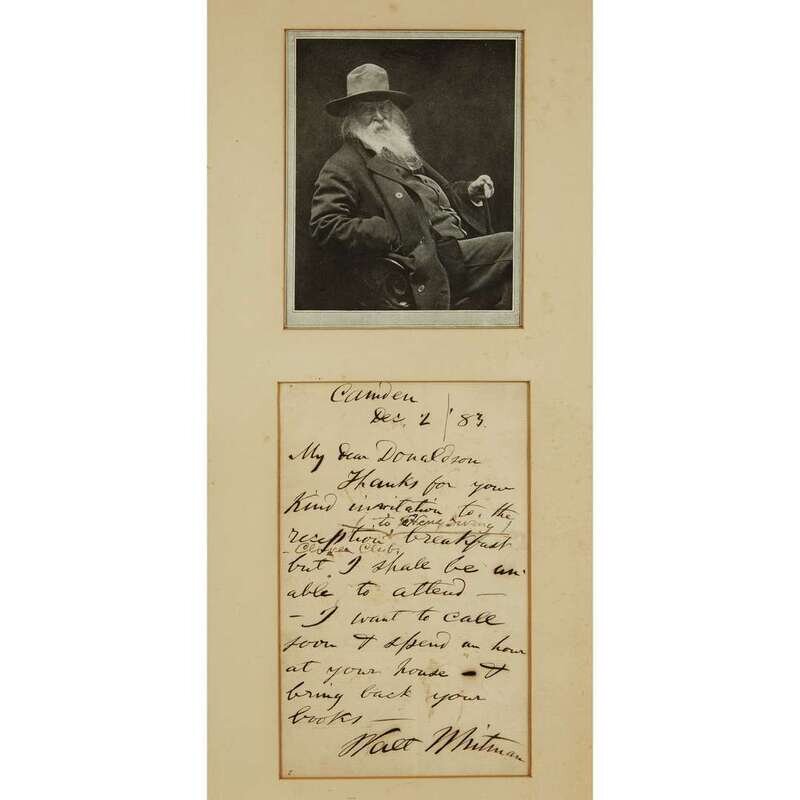 Camden
Dec. 2 / '83.
My dear Donaldson
Thanks for your
kind invitation to the
(to Henry Irving)
reception breakfast
- Clover Club -
but I shall be un-
able to attend —
- I want to call
soon & spend an hour
at your house - &
bring back your
books —
Walt Whitman